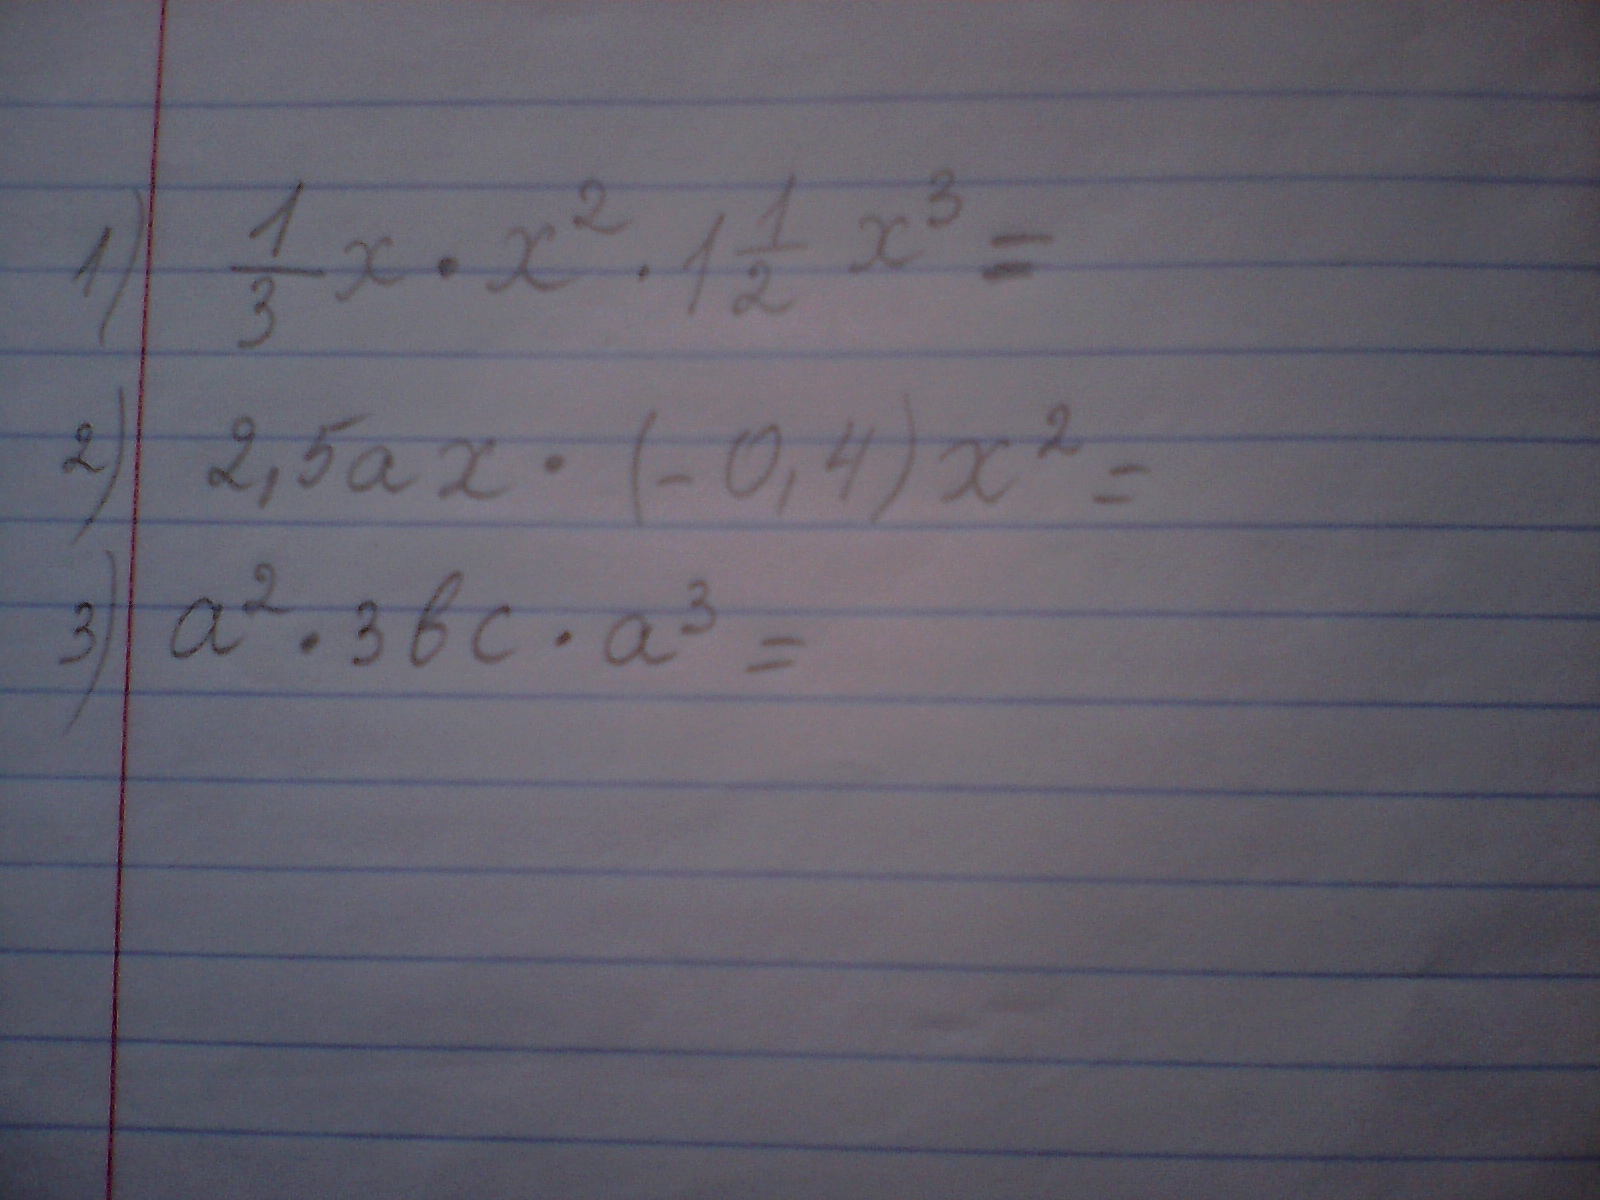 1) 1/3 x · x² · 1 1/2 x³ =
2) 2,5ax · (-0,4)x² =
3) a² · 3bc · a³ =